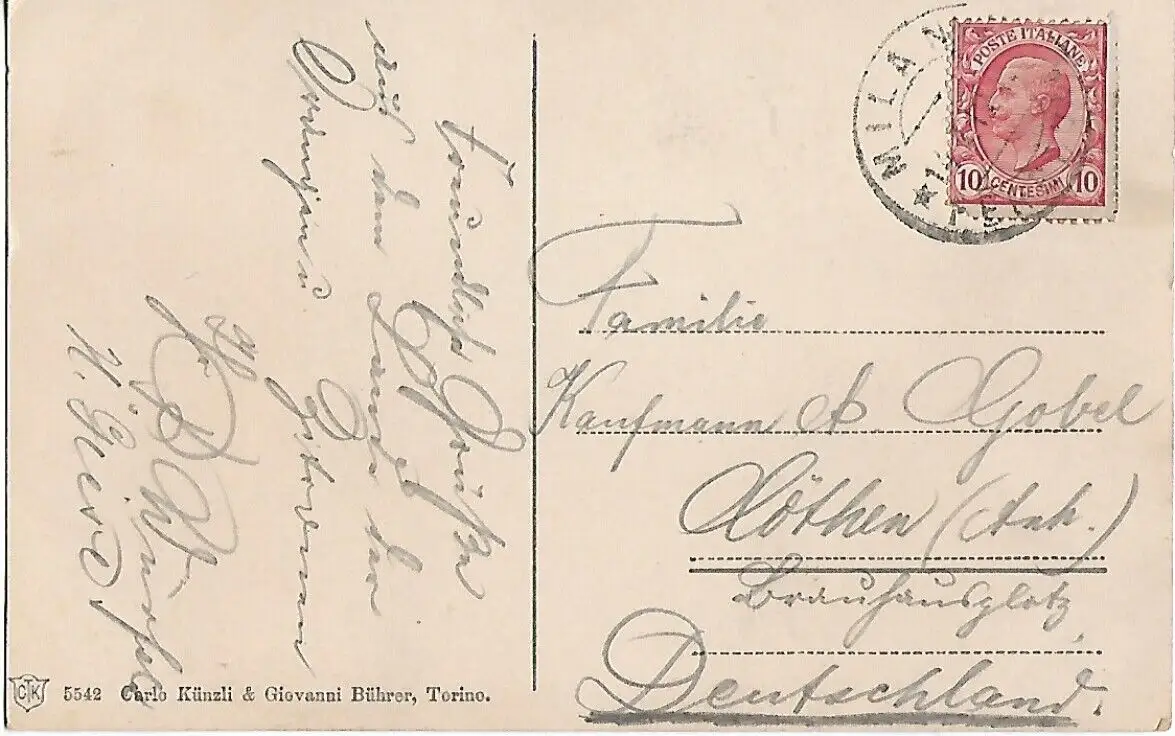 Freundliche Grüße
aus dem Lande der
Orangen u Zitronen
H. 
MILANO
POSTE ITALIANE
10 CENTESIMI 10
Familie
Kaufmann A. Göbel
Cöthen (Anh.)
Brauhausplatz
Deutschland.
CTK 5542 Carlo Künzli & Giovanni Bührer, Torino.